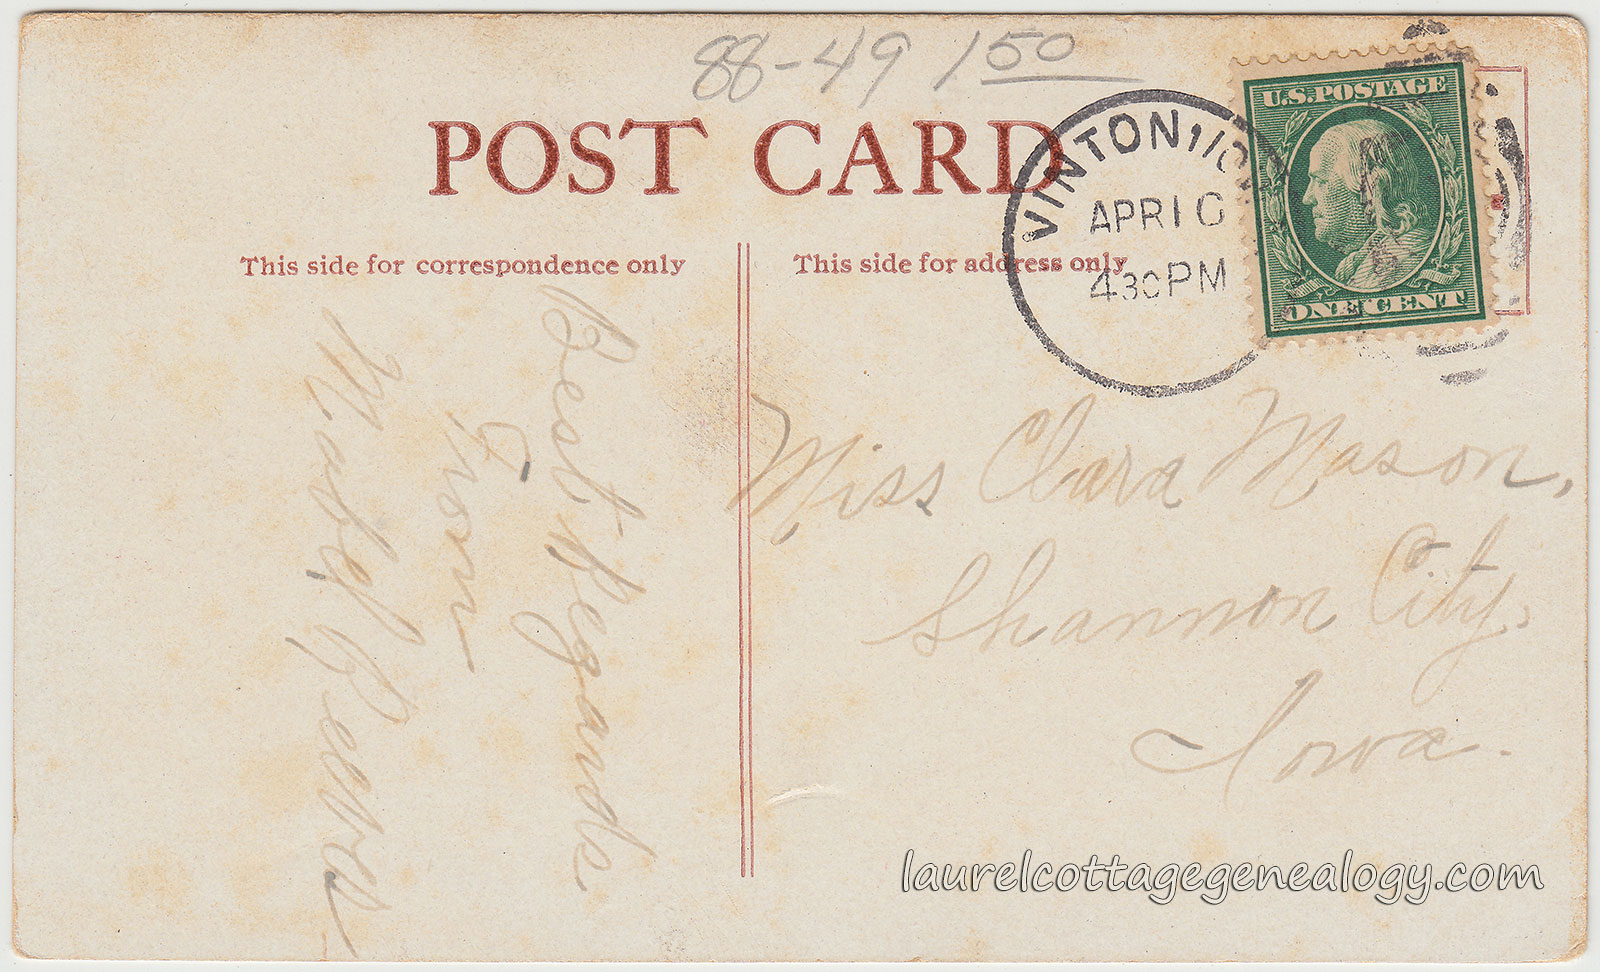 88-49 1 50
POST CARD
This side for correspondence only
This side for address only
VINTON, IO
APR 10
4 30 PM
U.S. POSTAGE
ONE CENT
Best Regards
From
Mabel
Miss Clara Mason,
Shannon City,
Iowa.
laurelcottagegenealogy.com